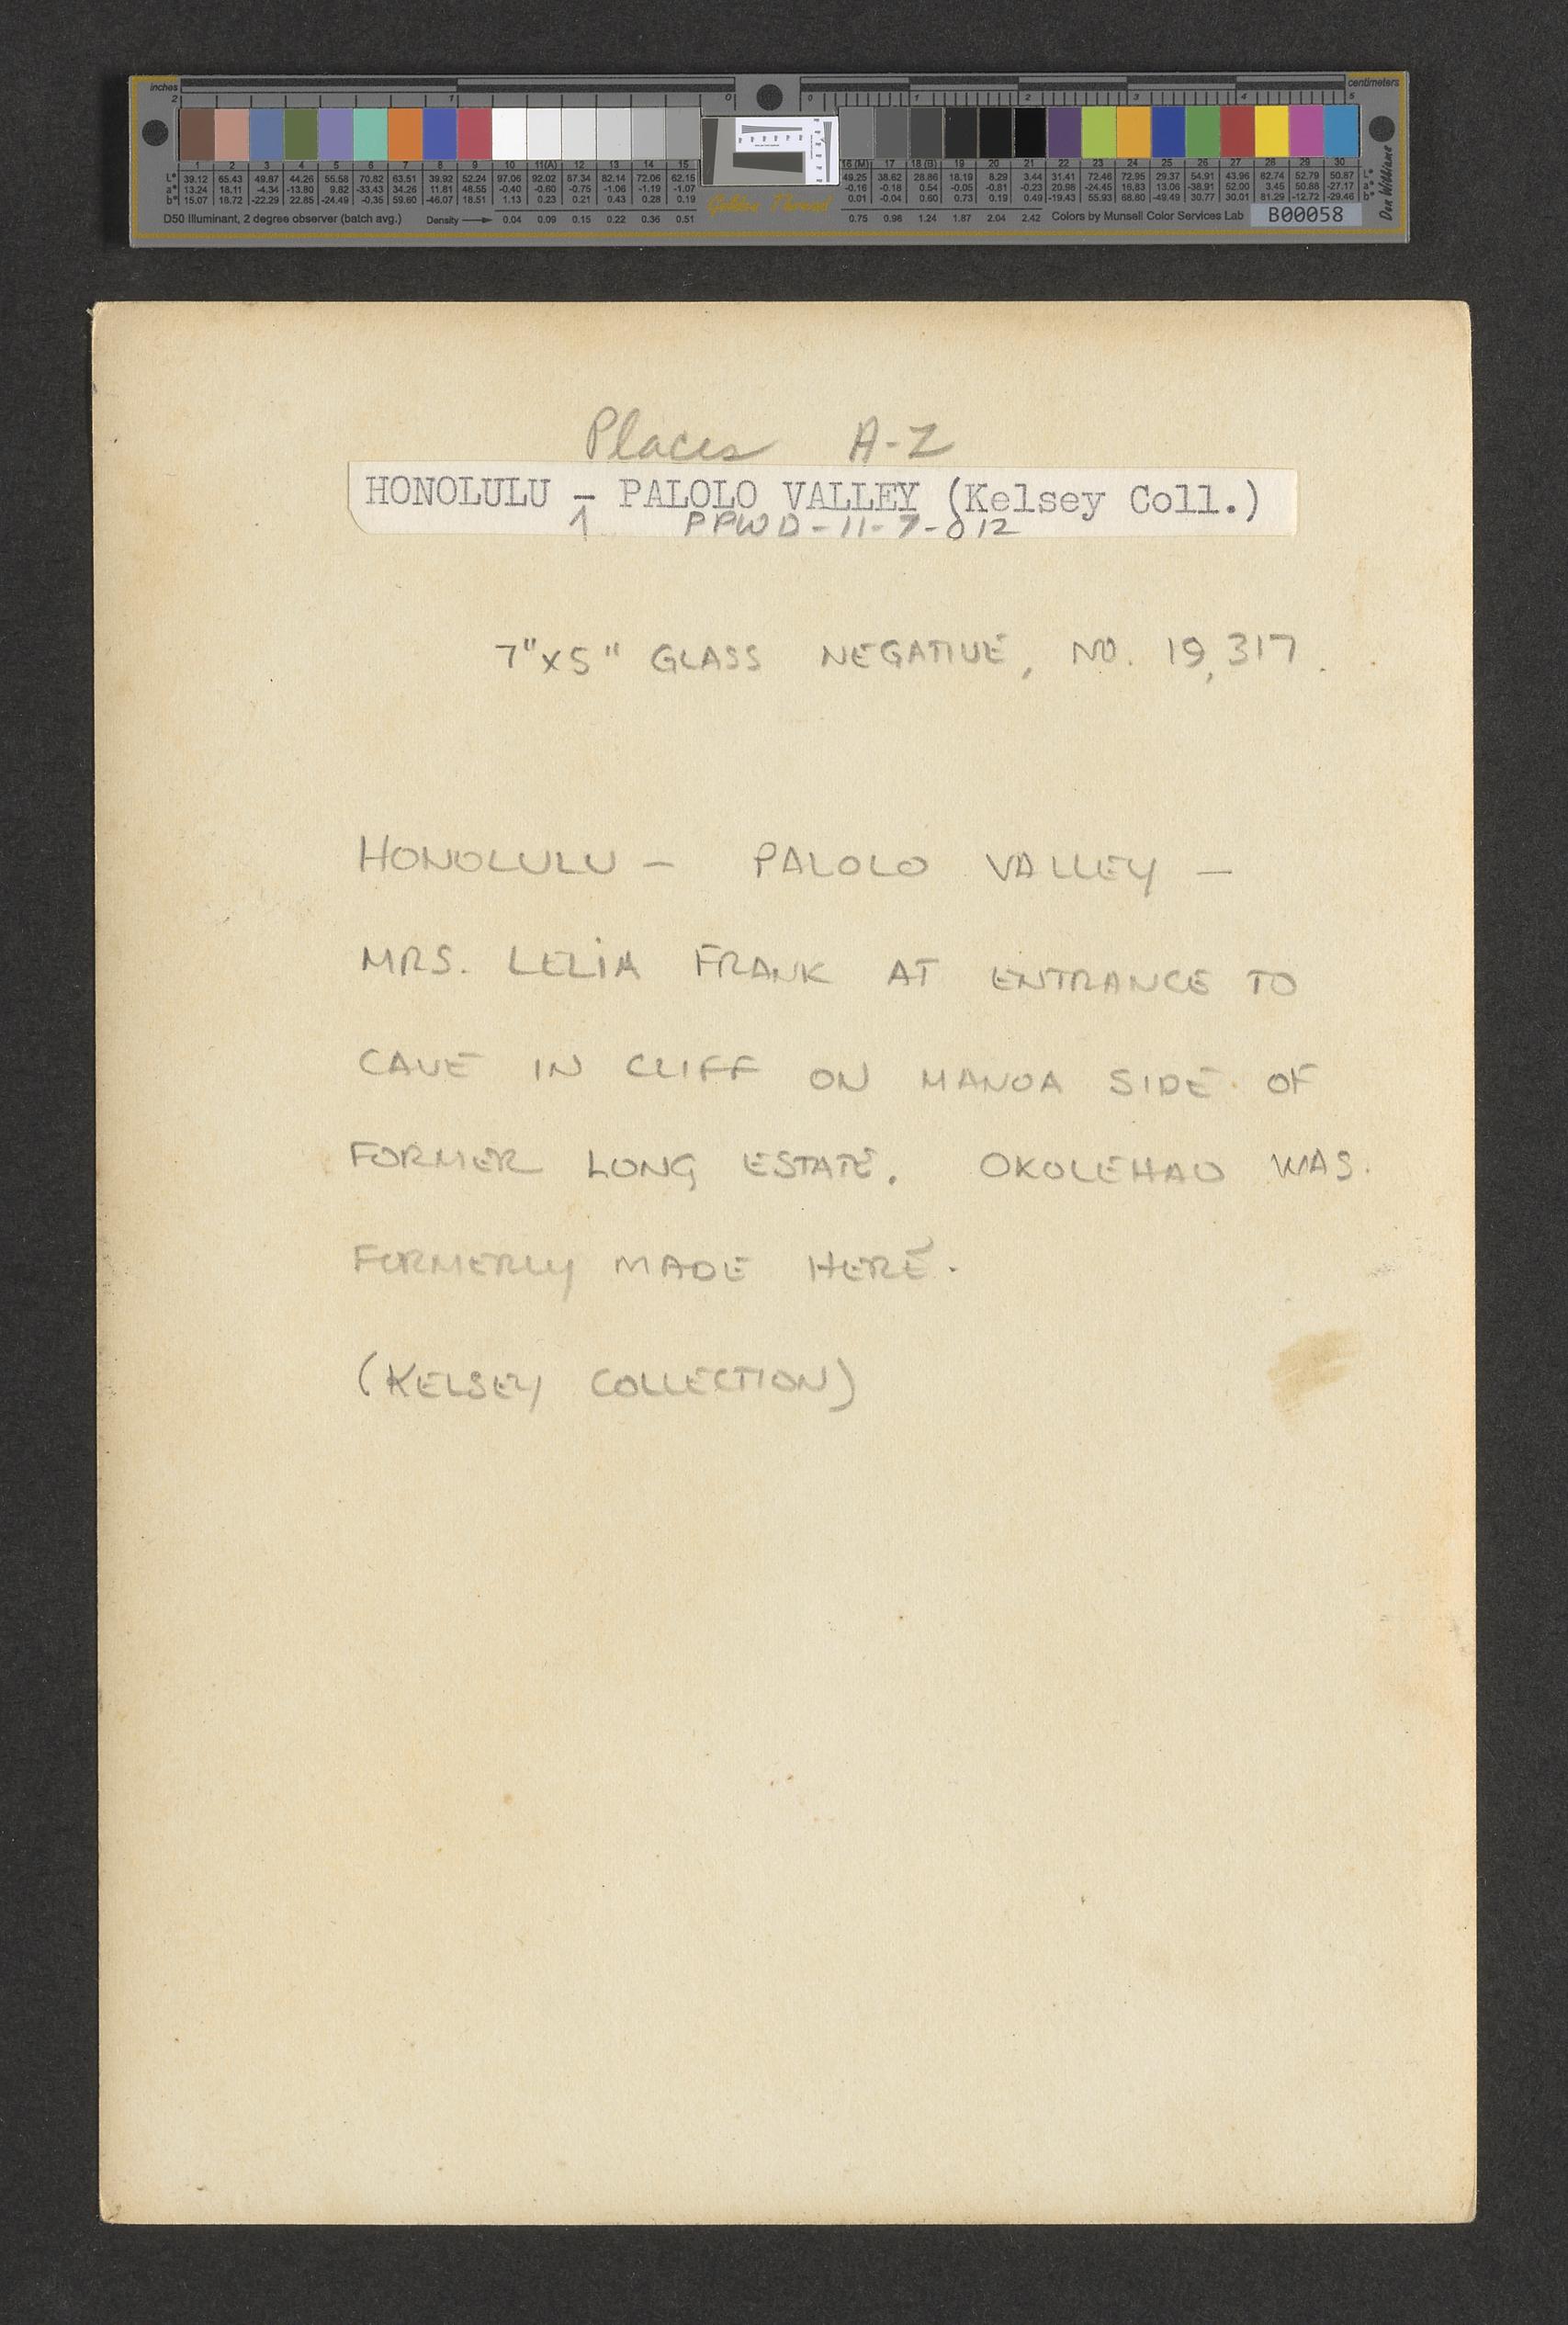 inches centimeters
2 1 0 0 1 2 3 4 5
1 2 3 4 5 6 7 8 9 10 11(A) 12 13 14 15 16 (M) 17 18 (B) 19 20 21 22 23 24 25 26 27 28 29 30
L* 39.12 65.43 49.87 44.26 55.56 70.82 63.51 39.92 52.24 97.06 92.02 87.34 82.14 72.06 62.15 49.25 38.62 28.86 18.19 8.29 3.44 31.41 72.46 72.95 29.37 54.91 43.96 82.74 52.79 50.87 L*
a* 13.24 18.11 -4.34 -13.80 9.82 -33.43 34.26 11.81 48.55 -0.40 -0.60 -0.75 -1.06 -1.19 -1.07 -0.16 -0.18 0.54 -0.05 -0.81 -0.23 20.98 -24.45 16.83 13.06 -38.91 52.00 3.45 50.88 -27.17 a*
b* 15.07 18.72 -22.29 22.85 -24.49 -0.35 59.60 -46.07 18.51 1.13 0.23 0.21 0.43 0.28 0.19 0.01 -0.04 0.60 0.73 0.19 0.49 -19.43 55.93 68.80 -49.49 30.77 30.01 81.29 -12.72 -29.46 b*
D50 Illuminant, 2 degree observer (batch avg.) Density 0.04 0.09 0.15 0.22 0.36 0.51 Golden Thread 0.75 0.98 1.24 1.87 2.04 2.42 Colors by Munsell Color Services Lab B00058
Don Williams
Places A-Z
HONOLULU - PALOLO VALLEY (Kelsey Coll.)
1 PPWD-11-7-012
7"x5" GLASS NEGATIVE, NO. 19,317.
HONOLULU - PALOLO VALLEY -
MRS. LELIA FRANK AT ENTRANCE TO
CAVE IN CLIFF ON MANOA SIDE OF
FORMER LONG ESTATE. OKOLEHAO WAS
FORMERLY MADE HERE.
(KELSEY COLLECTION)